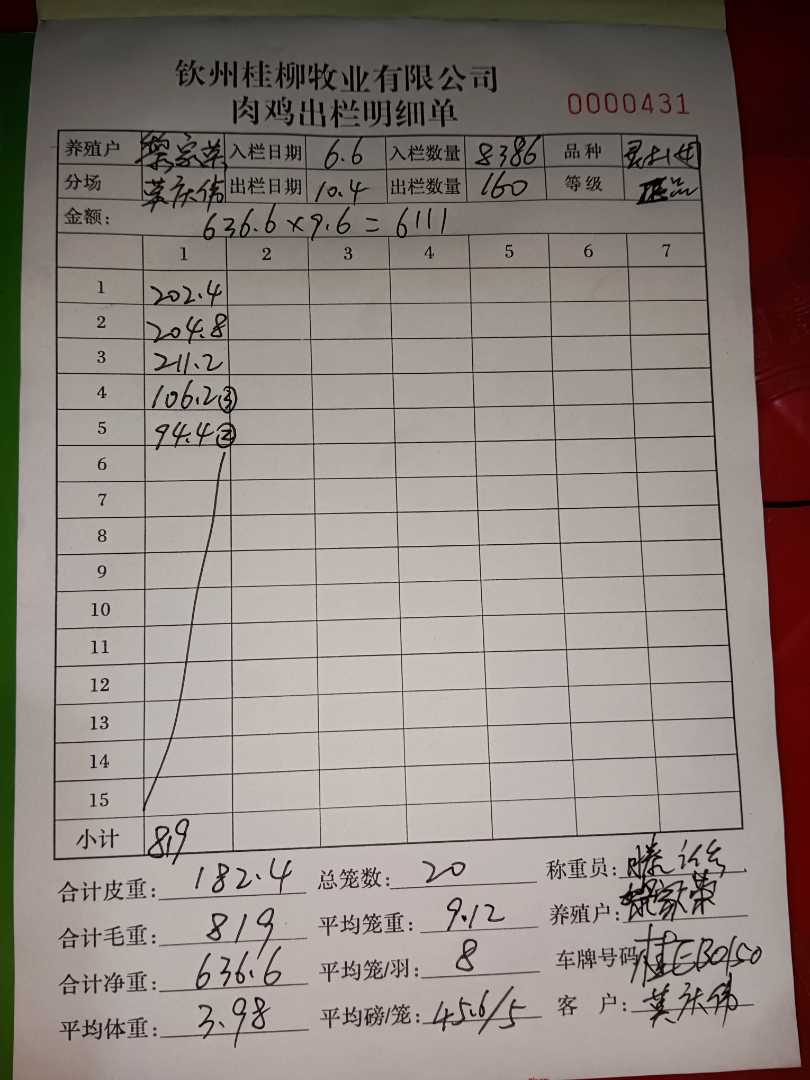 钦州桂柳牧业有限公司
肉鸡出栏明细单
0000431
养殖户 梁家荣 入栏日期 6.6 入栏数量 8386 品种
分场 莫庆伟 出栏日期 10.4 出栏数量 160 等级 正品
金额: 636.6×9.6=6111
1 2 3 4 5 6 7
1 202.4
2 204.8
3 211.2
4 106.2③
5 94.4②
6
7
8
9
10
11
12
13
14
15
小计 819
合计皮重: 182.4 总笼数: 20 称重员:
合计毛重: 819 平均笼重: 9.12 养殖户: 梁家荣
合计净重: 636.6 平均笼/羽: 8 车牌号码 桂EB0150
平均体重: 3.98 平均磅/笼: 45.6/5 客 户: 莫庆伟